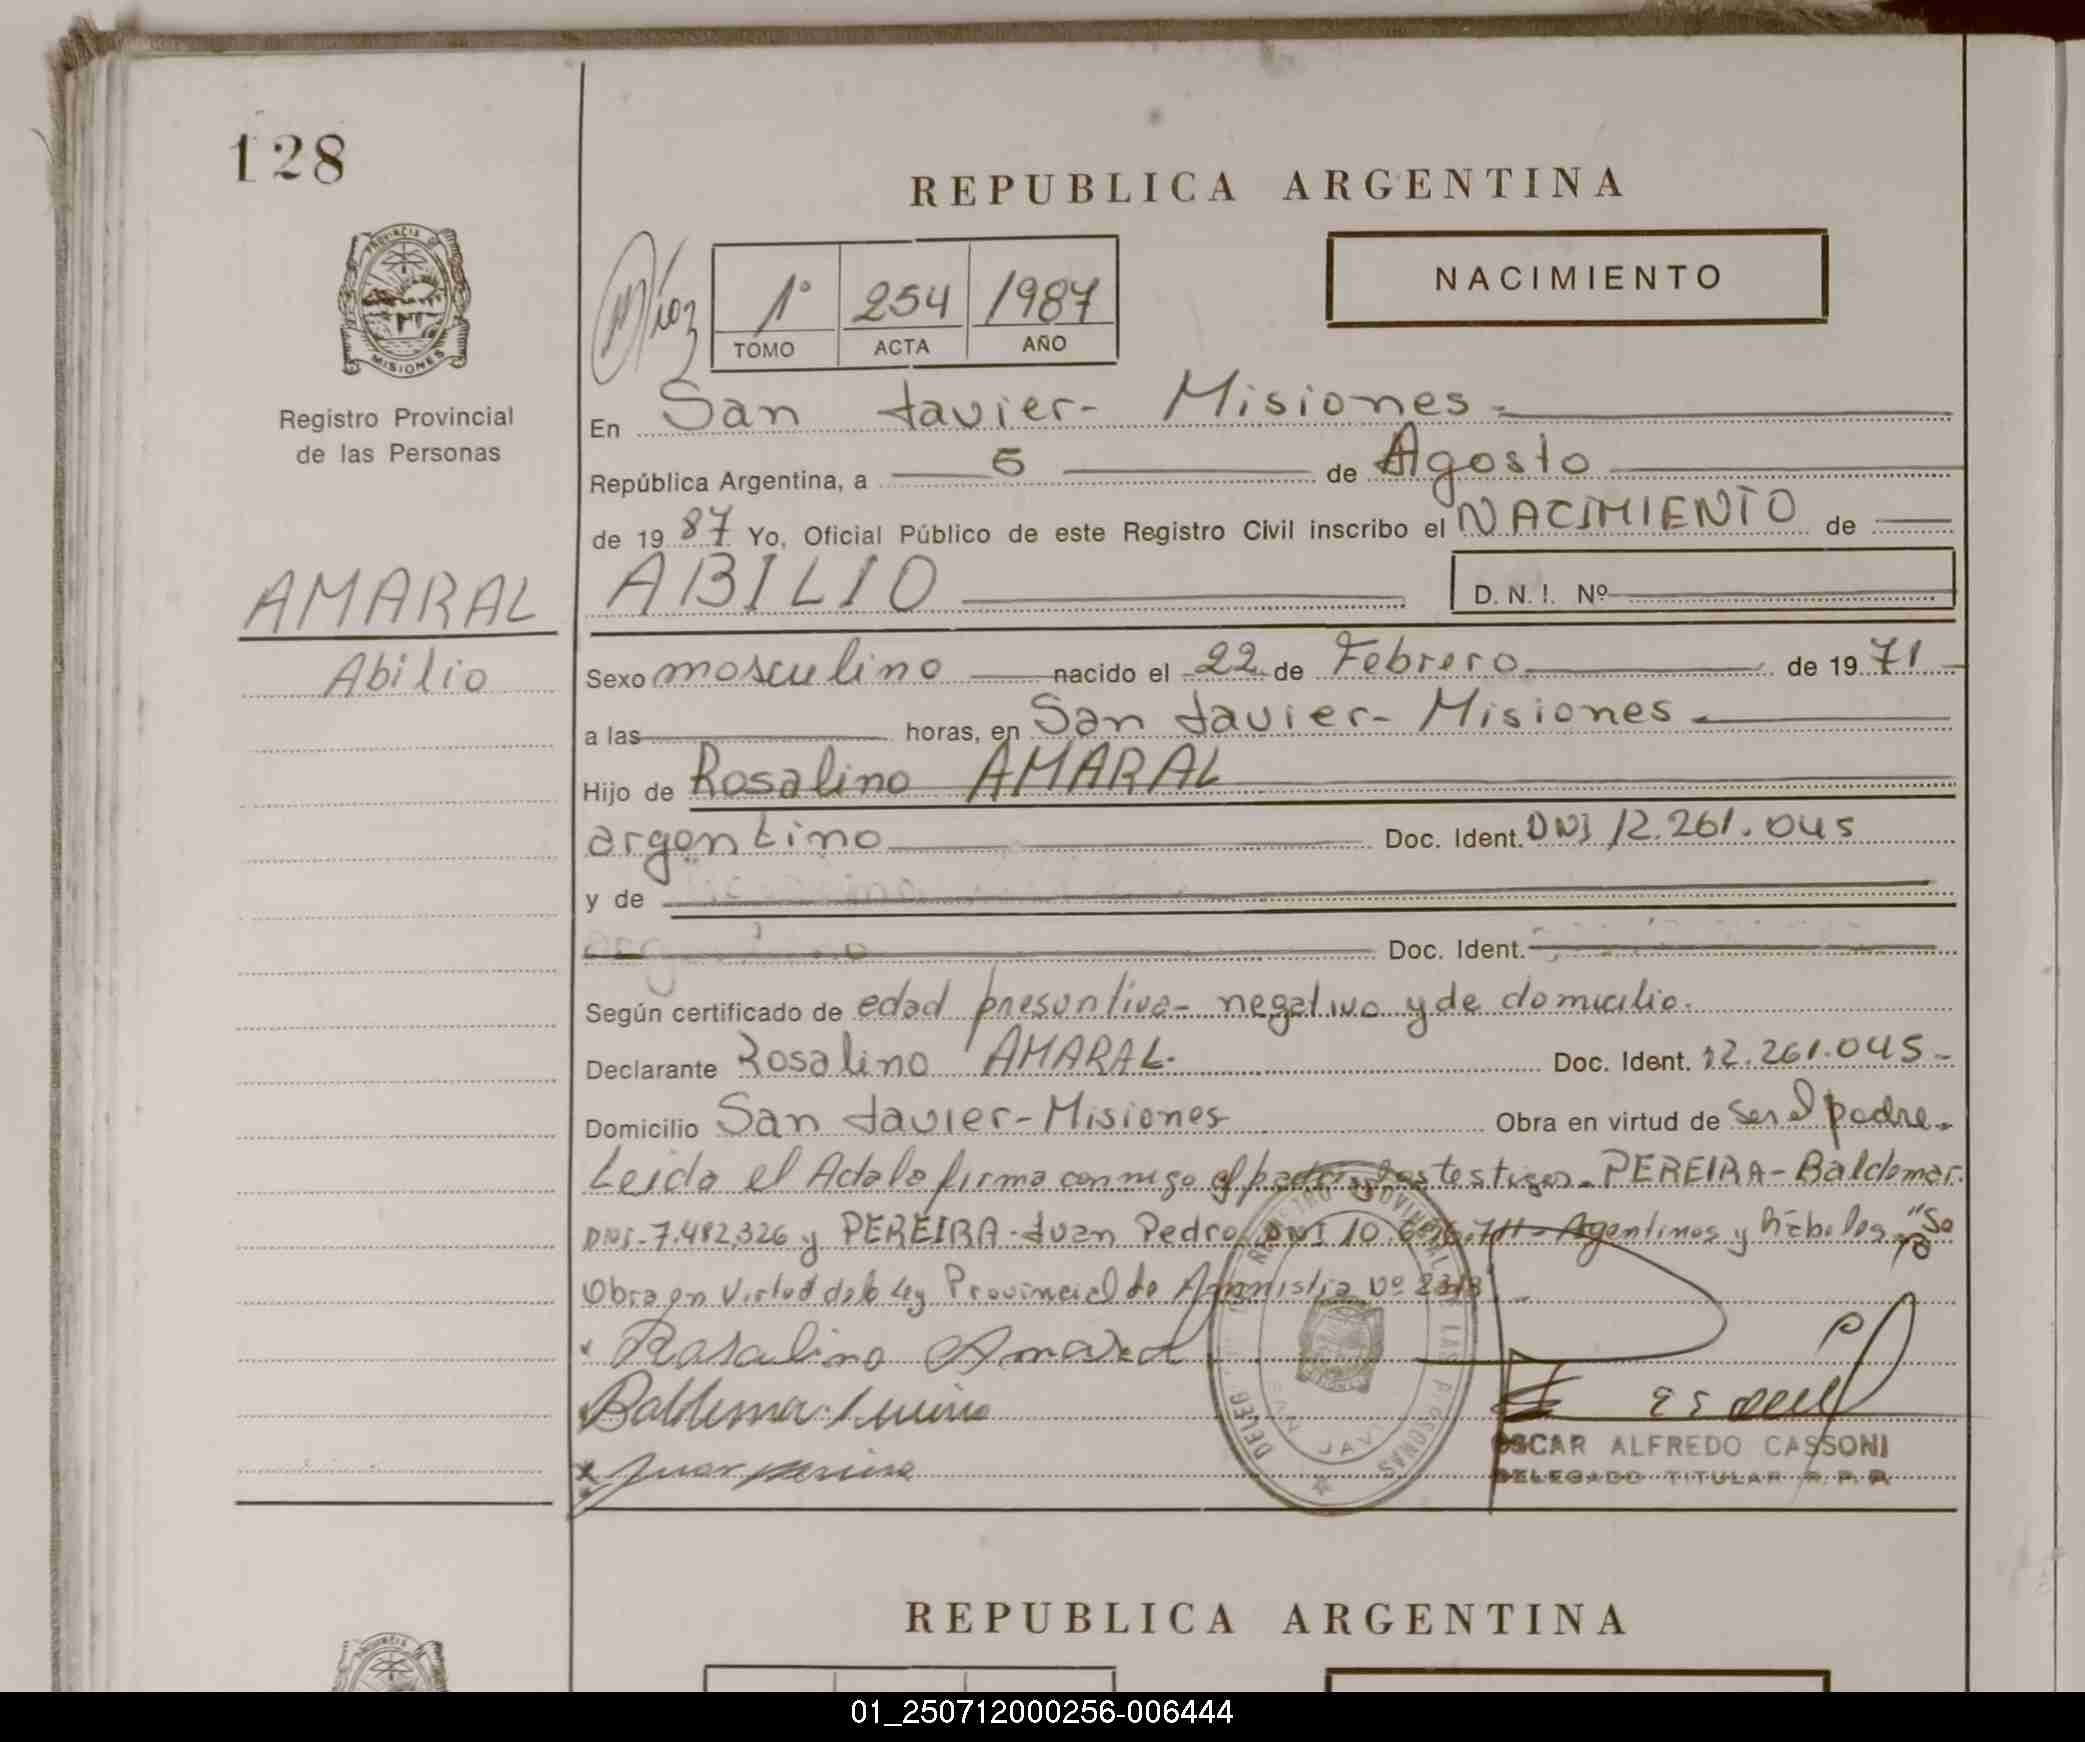 128
REPUBLICA ARGENTINA
PROVINCIA DE
MISIONES
Registro Provincial
de las Personas
1° 254 1987
TOMO ACTA AÑO
NACIMIENTO
En San Javier- Misiones-
República Argentina, a 5 de Agosto
de 1987 Yo, Oficial Público de este Registro Civil inscribo el NACIMIENTO de
AMARAL
ABILIO D.N.I. Nº
Abilio
Sexo masculino nacido el 22 de Febrero de 1971
a las horas, en San Javier- Misiones
Hijo de Rosalino AMARAL
argentino Doc. Ident. DNI 12.261.045
y de
Doc. Ident.
Según certificado de edad presuntiva- negativo y de domicilio.
Declarante Rosalino AMARAL. Doc. Ident. 12.261.045-
Domicilio San Javier-Misiones Obra en virtud de ser el padre.
Leida el Acta la firma conmigo el padre los testigos. PEREIRA- Baldemar.
DNI-7.482.326 y PEREIRA-Juan Pedro DNI 10. Argentinos y hábiles. "Se
Obra en Virtud de la Ley Provincial de Amnistia Nº
Rosalino Amaral
Juan
OSCAR ALFREDO CASSONI
DELEGADO TITULAR R.P.P.
REPUBLICA ARGENTINA
01_250712000256-006444